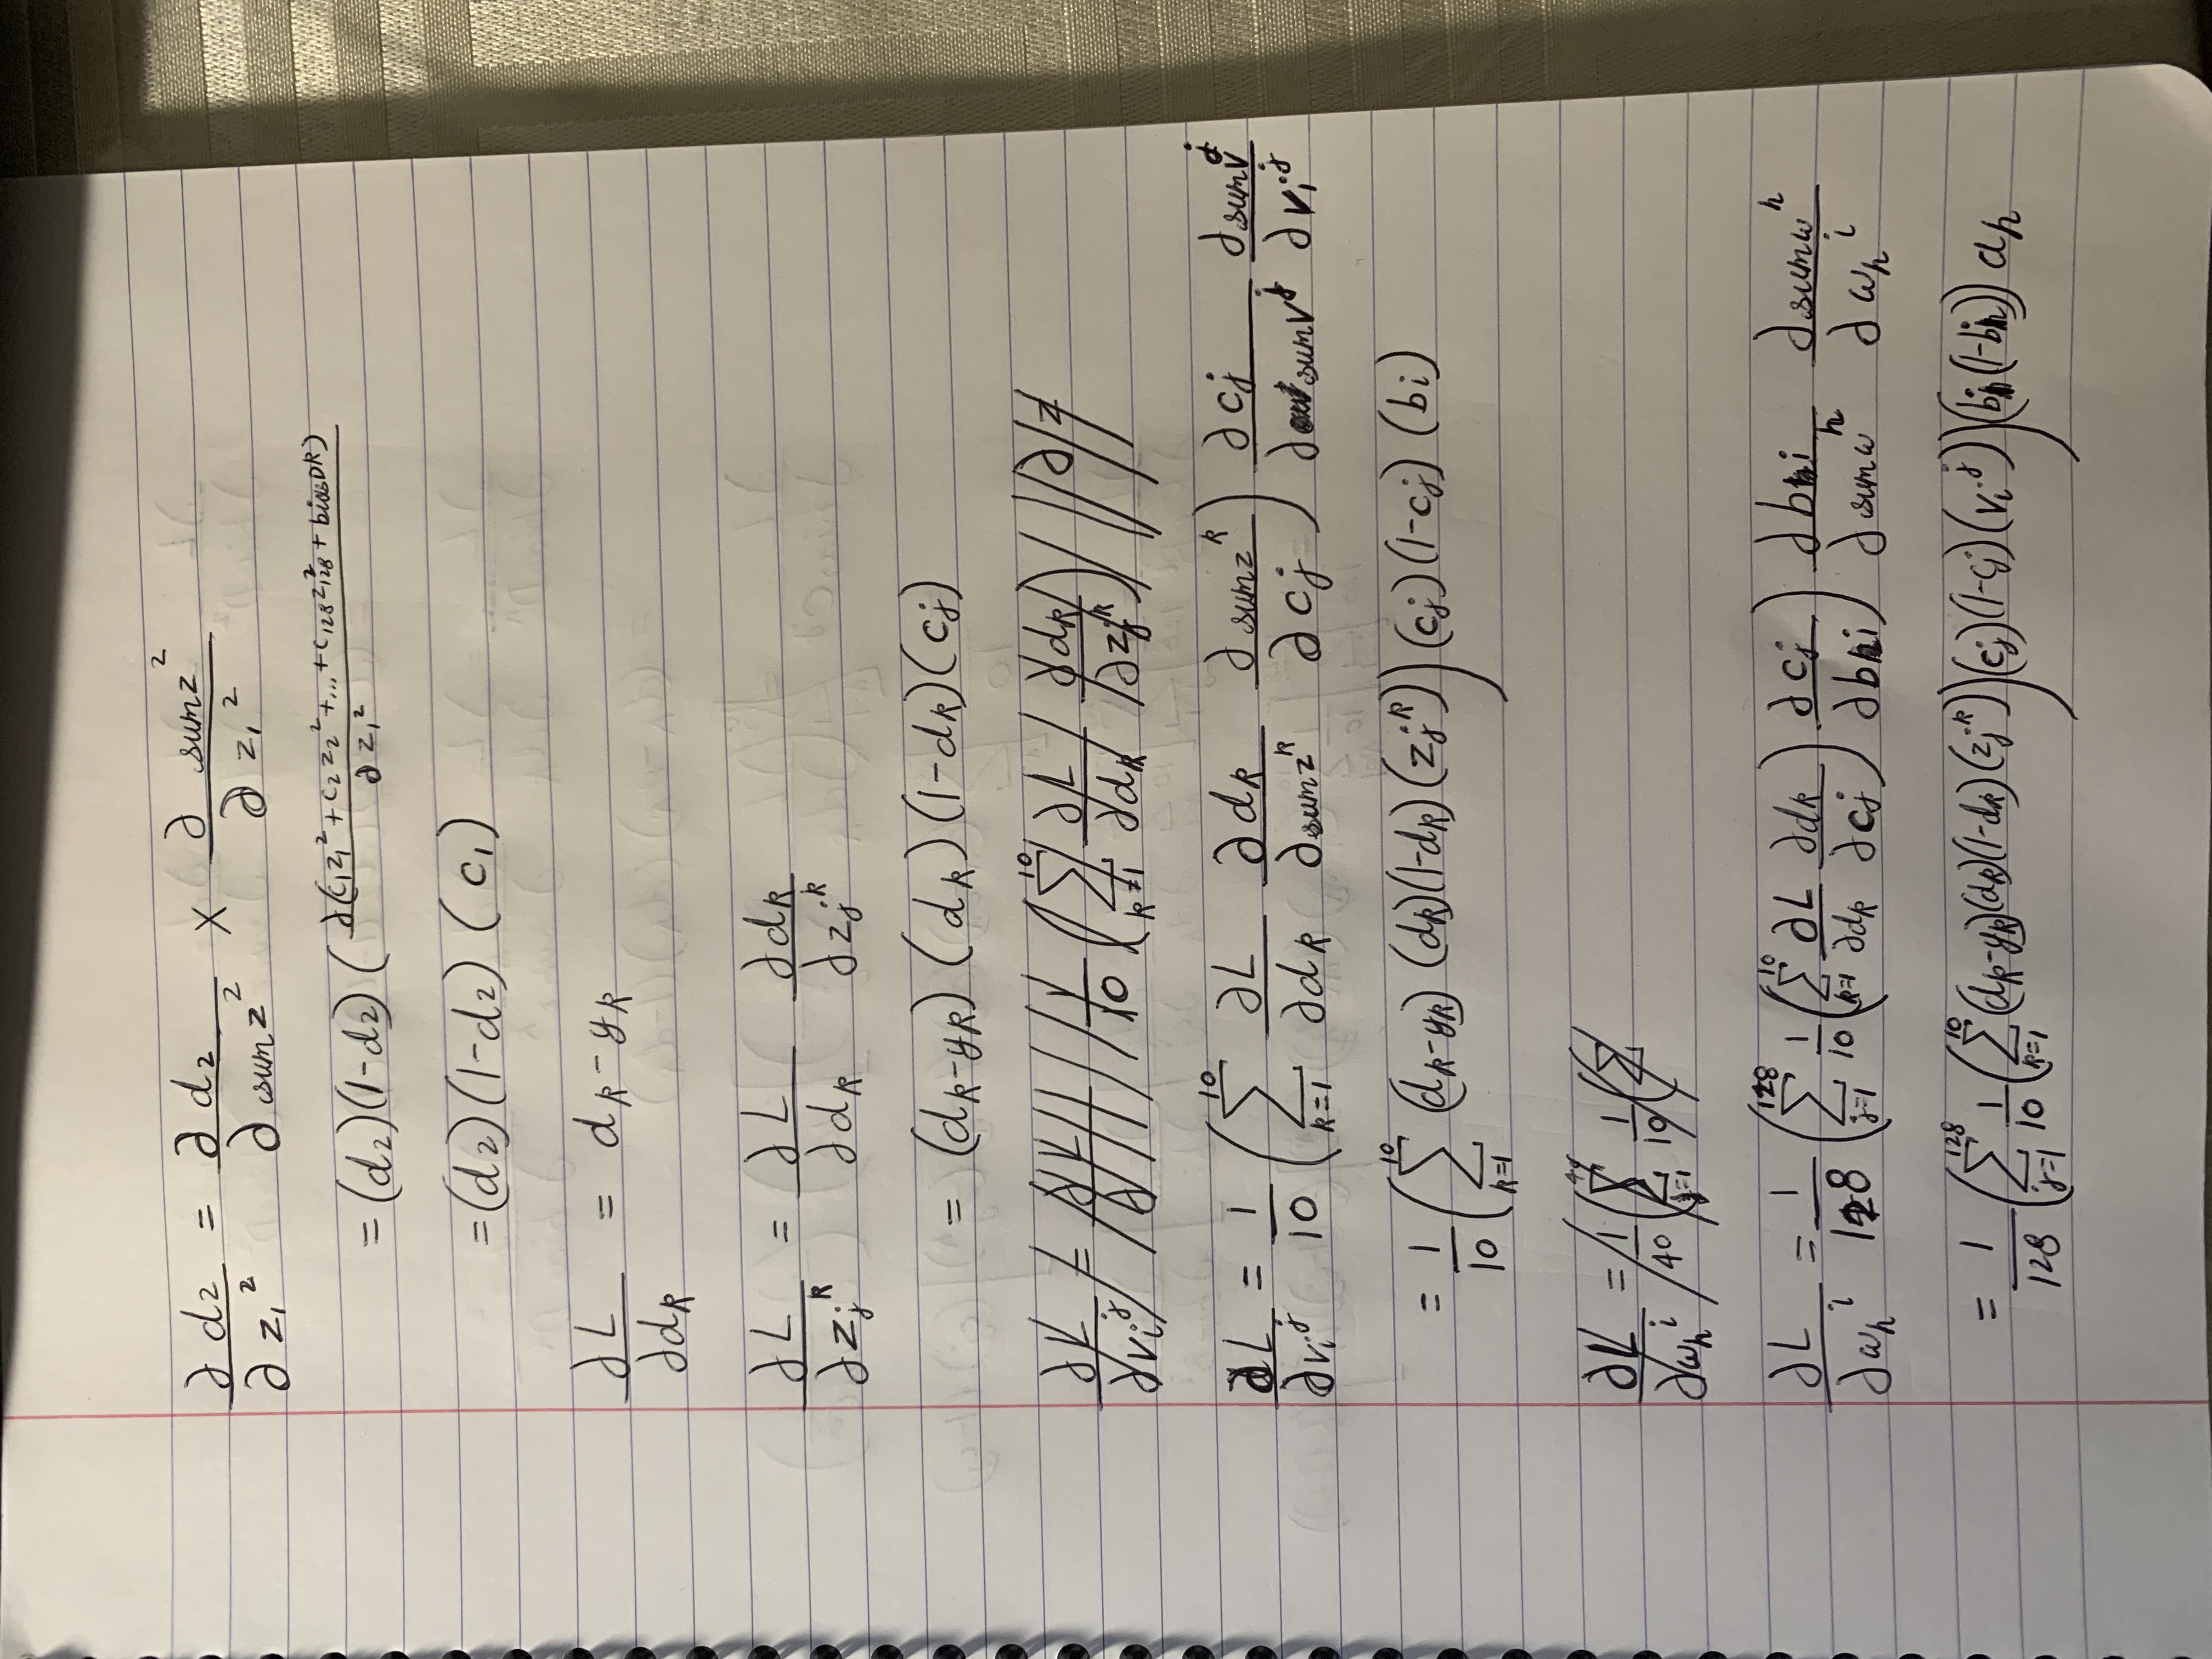 ∂d₂/∂z₁² = ∂d₂/∂sumz² × ∂sumz²/∂z₁²
= (d₂)(1-d₂) (∂(c₁z₁² + c₂z₂² + ... + c₁₂₈z₁₂₈² + biasDk)/∂z₁²)
= (d₂)(1-d₂) (c₁)
∂L/∂dₖ = dₖ - yₖ
∂L/∂zⱼᵏ = ∂L/∂dₖ ∂dₖ/∂zⱼᵏ
= (dₖ-yₖ) (dₖ) (1-dₖ) (cⱼ)
∂L/∂vᵢʲ = 1/10 (∑ₖ₌₁¹⁰ ∂L/∂dₖ ∂dₖ/∂zⱼᵏ) ∂z
∂L/∂vᵢʲ = 1/10 (∑ₖ₌₁¹⁰ ∂L/∂dₖ ∂dₖ/∂sumzᵏ ∂sumzᵏ/∂cⱼ) ∂cⱼ/∂sumvʲ ∂sumvʲ/∂vᵢʲ
= 1/10 (∑ₖ₌₁¹⁰ (dₖ-yₖ) (dₖ)(1-dₖ) (zⱼᵏ)) (cⱼ)(1-cⱼ) (bᵢ)
∂L/∂wₕⁱ = 1/40 (∑ⱼ₌₁ 1/10 (∑
∂L/∂wₕⁱ = 1/128 (∑ⱼ₌₁¹²⁸ 1/10 (∑ₖ₌₁¹⁰ ∂L/∂dₖ ∂dₖ/∂cⱼ) ∂cⱼ/∂bi) ∂bi/∂sumwʰ ∂sumwʰ/∂wₕⁱ
= 1/128 (∑ⱼ₌₁¹²⁸ 1/10 (∑ₖ₌₁¹⁰ (dₖ-yₖ)(dₖ)(1-dₖ)(zⱼᵏ)) (cⱼ)(1-cⱼ)(vᵢʲ)) (bi(1-bi)) aₕ